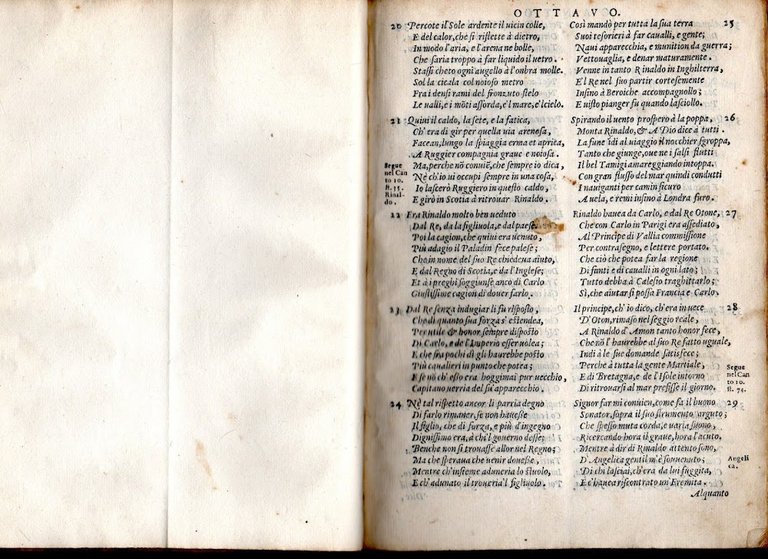 OTTAVO.
20 Percote il Sole ardente il uicin colle,
E del calor, che si riflette à dietro,
In modo l'aria, e l'arena ne bolle,
Che saria troppo à far liquido il uetro.
Stassi cheto ogni augello à l'ombra molle.
Sol la cicala col noioso metro
Fra i densi rami del fronzuto stelo
Le ualli, e i mõti assorda, e'l mare, e'l cielo.
21 Quiui il caldo, la sete, e la fatica,
Ch'era di gir per quella uia arenosa,
Facean, lungo la spiaggia erma et aprica,
A Ruggier compagnia graue e noiosa.
Segue
nel Can
to 10.
st. 35.
Rinal-
do.
Ma, perche nõ conuiẽ, che sempre io dica,
Nè ch'io ui occupi sempre in una cosa,
Io lascerò Ruggiero in questo caldo,
E girò in Scotia à ritrouar Rinaldo.
22 Era Rinaldo molto ben ueduto
Dal Re, da la figliuola, e dal paese
Poi la cagion, che quiui era uenuto,
Più adagio il Paladin fece palese;
Che in nome del suo Re chiedeua aiuto,
E dal Regno di Scotia, e da l'Inglese;
Et à i preghi soggiunse anco di Carlo
Giustissime cagion di douer farlo.
23 Dal Re senza indugiar li fu risposto,
Che di quanto sua forza s'estendea,
Per utile & honor sempre disposto
Di Carlo, e de l'Imperio esser uolea;
E che fra pochi dì gli haurebbe posto
Più caualieri in punto che potea;
E se nõ ch'esso era hoggimai pur uecchio,
Capitano uerria del su' apparecchio.
24 Nè tal rispetto ancor li parria degno
Di farlo rimaner, se non hauesse
Il figlio, che di forza, e più d'ingegno
Dignissimo era, à chi'l gouerno desse;
Benche non si trouasse allor nel Regno;
Ma che speraua che uenir douesse
Mentre ch'insieme aduneria lo stuolo,
E ch'adunato il troueria'l figliuolo.
Così mandò per tutta la sua terra 25
Suoi tesorieri à far caualli, e gente;
Naui apparecchia, e munition da guerra;
Vettouaglia, e denar maturamente.
Venne in tanto Rinaldo in Inghilterra,
E'l Re nel suo partir cortesemente
Insino à Beroiche accompagnollo;
E uisto pianger fu quando lasciollo.
Spirando il uento prospero à la poppa, 26
Monta Rinaldo, & A Dio dice à tutti.
La fune indi al uiaggio il nocchier sgroppa,
Tanto che giunge, oue ne i salsi flutti
Il bel Tamigi amareggiando intoppa.
Con gran flusso del mar quindi condutti
I nauiganti per camin sicuro
A uela, e remi insino à Londra furo.
Rinaldo hauea da Carlo, e dal Re Otone, 27
Che con Carlo in Parigi era assediato,
Al Principe di Vallia commissione
Per contrasegno, e lettere portato.
Che ciò che potea far la regione
Di fanti e di caualli in ogni lato;
Tutto debba à Calesio traghittarlo;
Sì, che aiutar si possa Francia e Carlo.
Il principe, ch'io dico, ch'era in uece 28
D'Oton, rimaso nel seggio reale,
A Rinaldo d'Amon tanto honor fece,
Che nõ l'haurebbe al suo Re fatto uguale,
Indi à le sue domande satisfece;
Perche à tutta la gente Martiale,
E di Bretagna, e de l'Isole intorno
Di ritrouarsi al mar prefisse il giorno.
Segue
nel Can
to 10.
st. 74.
Signor far mi conuien, come fa il buono 29
Sonator, sopra il suo stromento arguto;
Che spesso muta corda, e uaria suono,
Ricercando hora il graue, hora l'acuto,
Mentre à dir di Rinaldo attento sono,
D'Angelica gentil m'è souuenuto;
Di chi lasciai, ch'era da lui fuggita,
E c'hauea riscontrato un Eremita.
Angeli
ca.
Alquanto